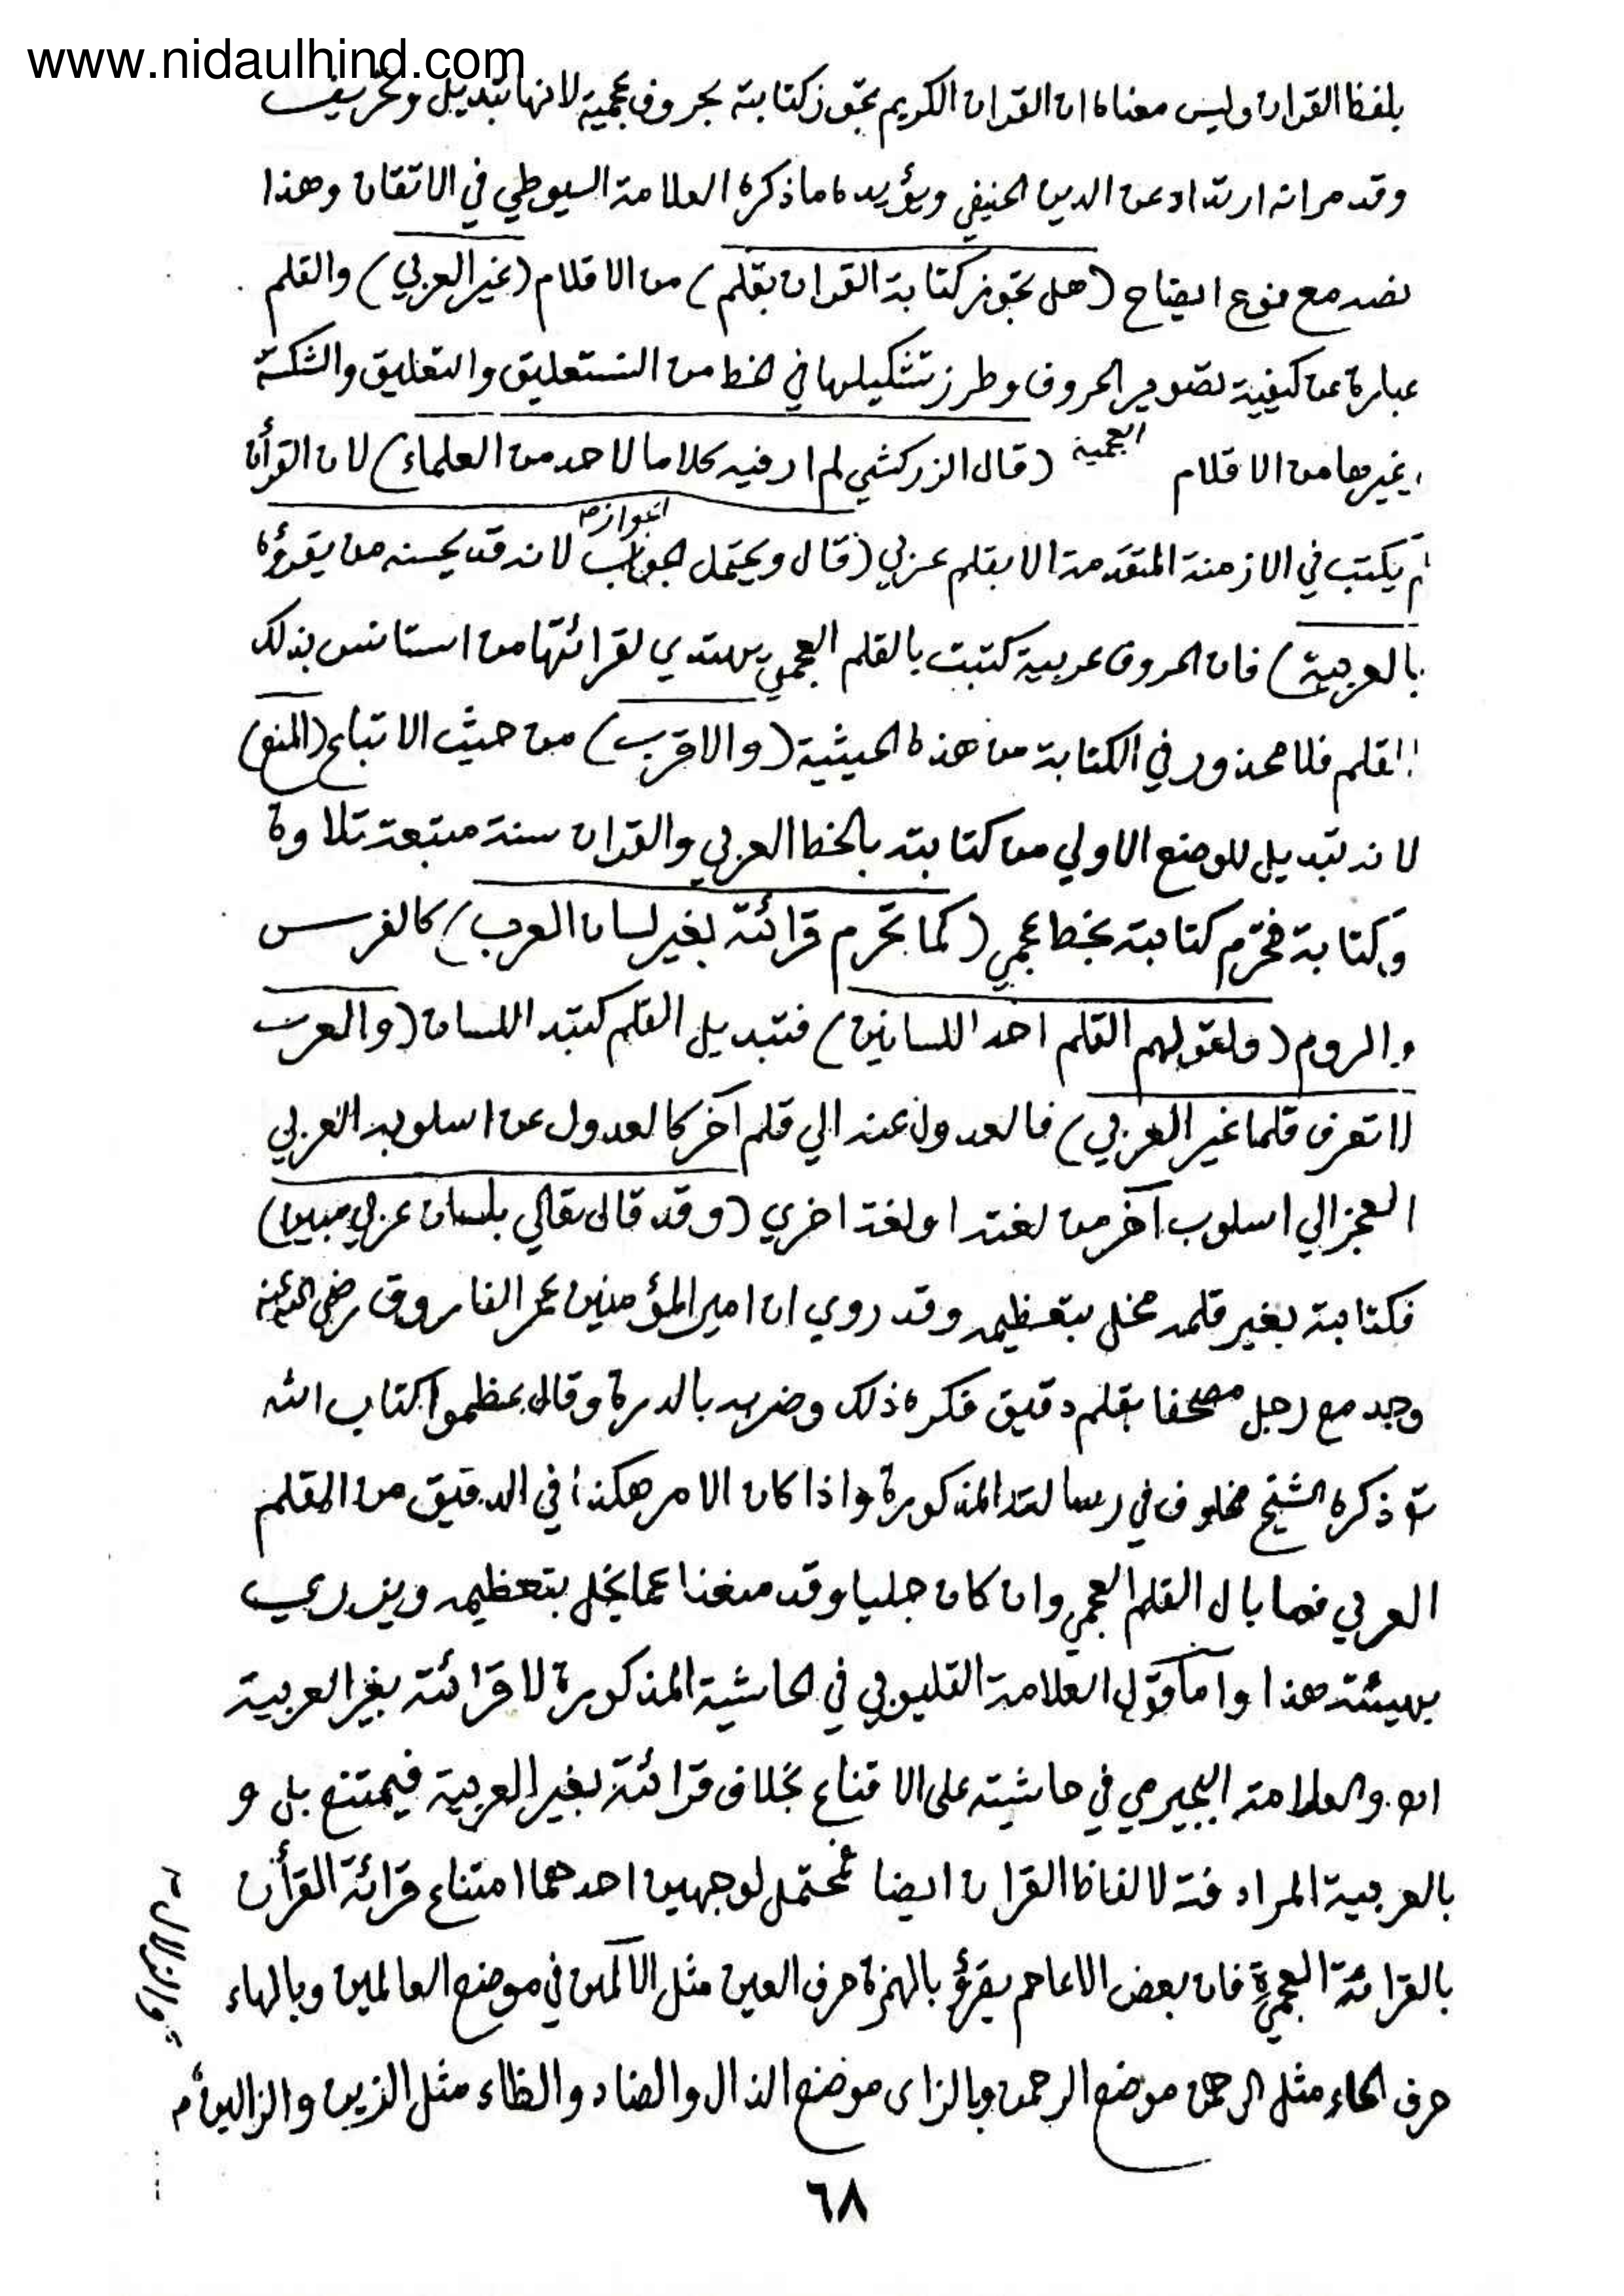 www.nidaulhind.com
بلفظ القران وليس معناه ان القران الكريم تجوز كتابته بحروف عجمية لانها تبديل وتحريف
وقد مر انه ارتداد عن الدين الحنيفي ويؤيده ما ذكره العلامة السيوطي في الاتقان وهذا
نصه مع نوع ايضاح (هل تجوز كتابة القران بقلم) من الاقلام (غير العربي) والقلم
عبارة عن كيفية تصوير الحروف وطرز تشكيلها في الخط من النستعليق والتعليق والشكستة
وغيرها من الاقلام العجمية (قال الزركشي لم ار فيه كلاما لاحد من العلماء) لان القرأن
لم يكتب في الازمنة المتقدمة الا بقلم عربي (قال ويحتمل الجواز لانه قد يحسنه من يقرؤه
بالعربية) فان الحروف عربية كتبت بالقلم العجمي يهتدي لقرائتها من استانس بذلك
القلم فلا محذور في الكتابة من هذه الحيثية (والاقرب) من حيث الاتباع (المنع)
لانه تبديل للوضع الاولي من كتابته بالخط العربي والقران سنة متبعة تلاوة
وكتابة فتحرم كتابته بخط عجمي (كما تحرم قرائته بغير لسان العرب) كالفرس
والروم (ولقولهم القلم احد اللسانين) فتبديل القلم كتبد اللسان (والعرب
لا تعرف قلما غير العربي) فالعدول عنه الي قلم آخر كالعدول عن اسلوبه العربي
المعجز الي اسلوب آخر من لغته او لغة اخري (وقد قال تعالي بلسان عربي مبين)
فكتابته بغير قلمه مخل بتعظيمه وقد روي ان امير المؤمنين عمر الفاروق رضي الله عنه
وجد مع رجل مصحفا بقلم دقيق فكره ذلك وضربه بالدرة وقال عظموا كتاب الله
ذكره الشيخ مخلوف في رسالته المذكورة واذا كان الامر هكذا في الدقيق من القلم
العربي فما بال القلم العجمي وان كان جليا وقد منعنا عما يخل بتعظيمه ويزدري
بهيئته هذا واما قول العلامة القليوبي في الحاشية المذكورة لا قرائته بغير العربية
اه. والعلامة البجيرمي في حاشيته على الاقناع بخلاف قرائته بغير العربية فيمتنع بل و
بالعربية المرادفة لالفاظ القران ايضا فمحتمل لوجهين احدهما امتناع قرائة القرأن
بالقرائة العجمية فان بعض الاعاجم يقرؤ بالهمزة حرف العين مثل الآلمين في موضع العالمين وبالهاء
حرف الحاء مثل الرهمن موضع الرحمن وبالزاى موضع الذال والضاد والظاء مثل الزين والزالين
والزلال
٦٨